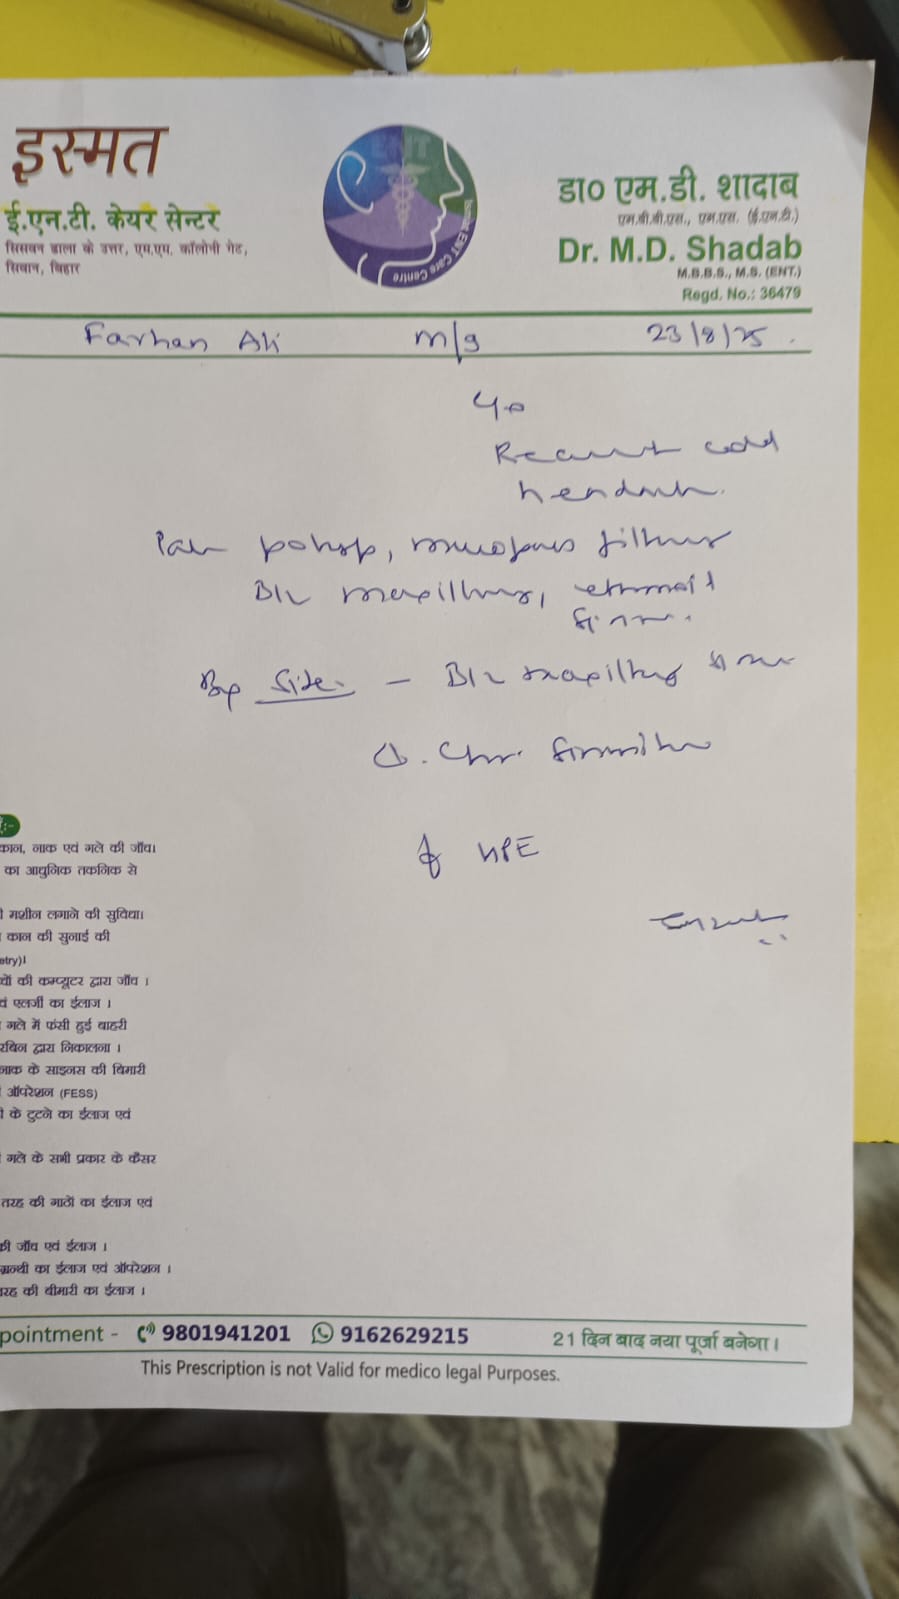 इस्मत
ई.एन.टी. केयर सेन्टर
सिसवन ढाला के उत्तर, एम.एम. कॉलोनी गेट,
सिवान, बिहार
ENT
Ismat ENT Care Centre
डा० एम.डी. शादाब
एम.बी.बी.एस., एम.एस. (ई.एन.टी.)
Dr. M.D. Shadab
M.B.B.S., M.S. (ENT.)
Regd. No.: 36479
Farhan Ali M/9 23/8/25
Recurrent cold
headache
B/L maxillary, ethmoid
Site - B/L maxillary sinus
Chr. Sinusitis
HPE
कान, नाक एवं गले की जाँच।
का आधुनिक तकनिक से
मशीन लगाने की सुविधा।
कान की सुनाई की
etry)।
की कम्प्यूटर द्वारा जाँच ।
एलर्जी का ईलाज ।
गले में फंसी हुई बाहरी
द्वारा निकालना ।
नाक के साइनस की बिमारी
ऑपरेशन (FESS)
के टुटने का ईलाज एवं
गले के सभी प्रकार के कैंसर
तरह की गाठों का ईलाज एवं
की जाँच एवं ईलाज ।
ग्रन्थी का ईलाज एवं ऑपरेशन ।
तरह की बीमारी का ईलाज ।
pointment - 9801941201 9162629215 21 दिन बाद नया पूर्जा बनेगा।
This Prescription is not Valid for medico legal Purposes.